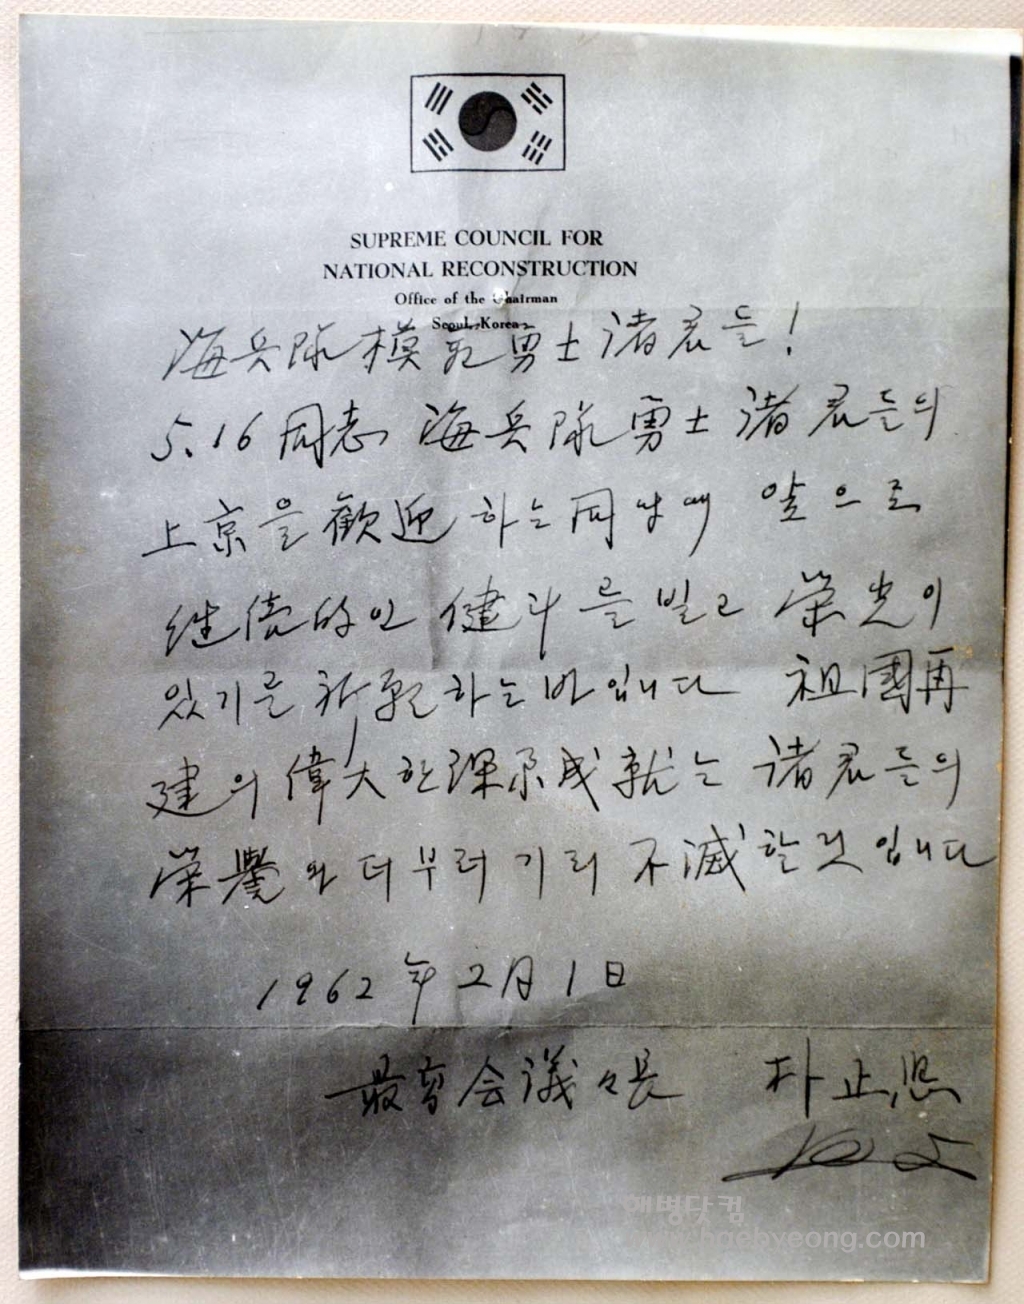 SUPREME COUNCIL FOR
NATIONAL RECONSTRUCTION
Office of the Chairman
Seoul, Korea
海兵隊模範勇士諸君들!
5.16 同志 海兵隊 勇士 諸君들의
上京을 歡迎하는 同時에 앞으로
継続的인 健斗를 빌고 榮光이
있기를 祈願하는 바입니다 祖國再
建의 偉大한 課業成就는 諸君들의
榮譽와 더부러 기리 不滅할 것입니다
1962年 2月 1日
最高会議々長 朴正熙
해병닷컴
haebyeong.com